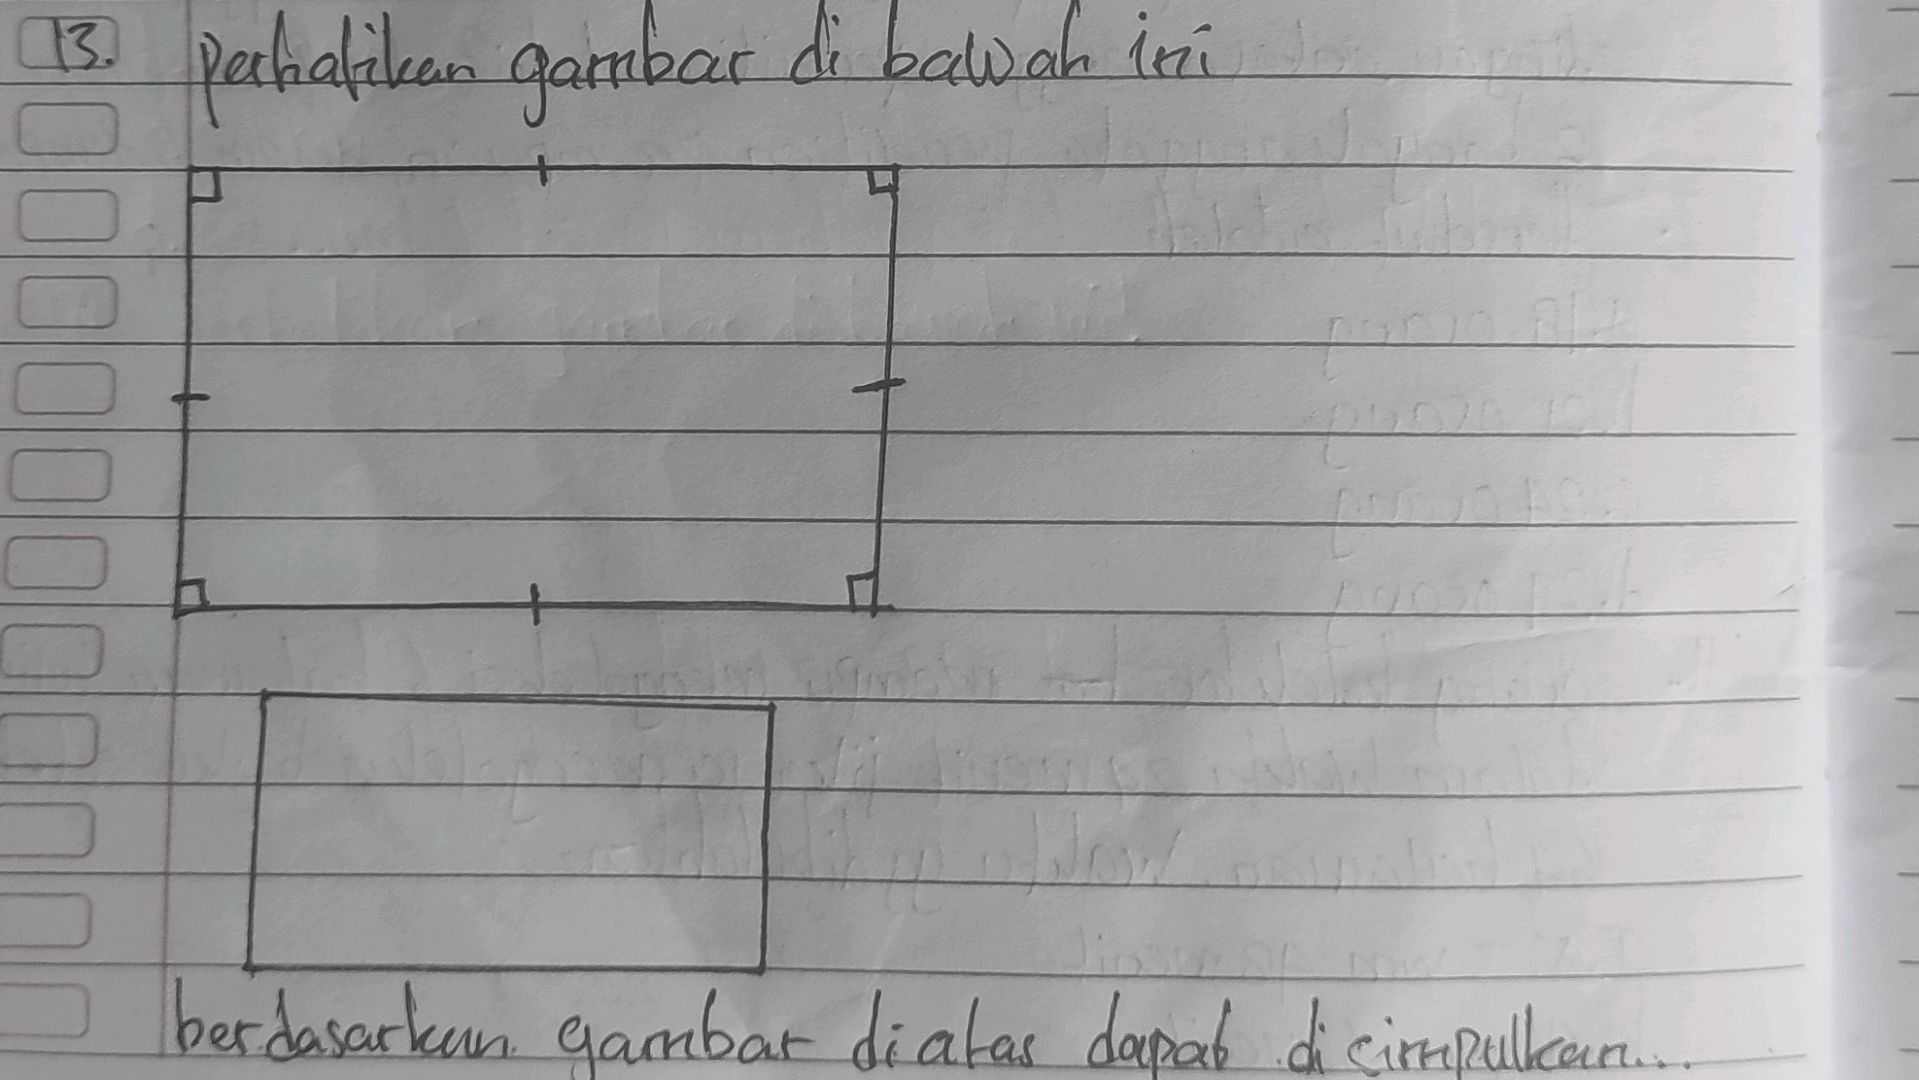 13. perhatikan gambar di bawah ini
berdasarkan gambar diatas dapat disimpulkan...